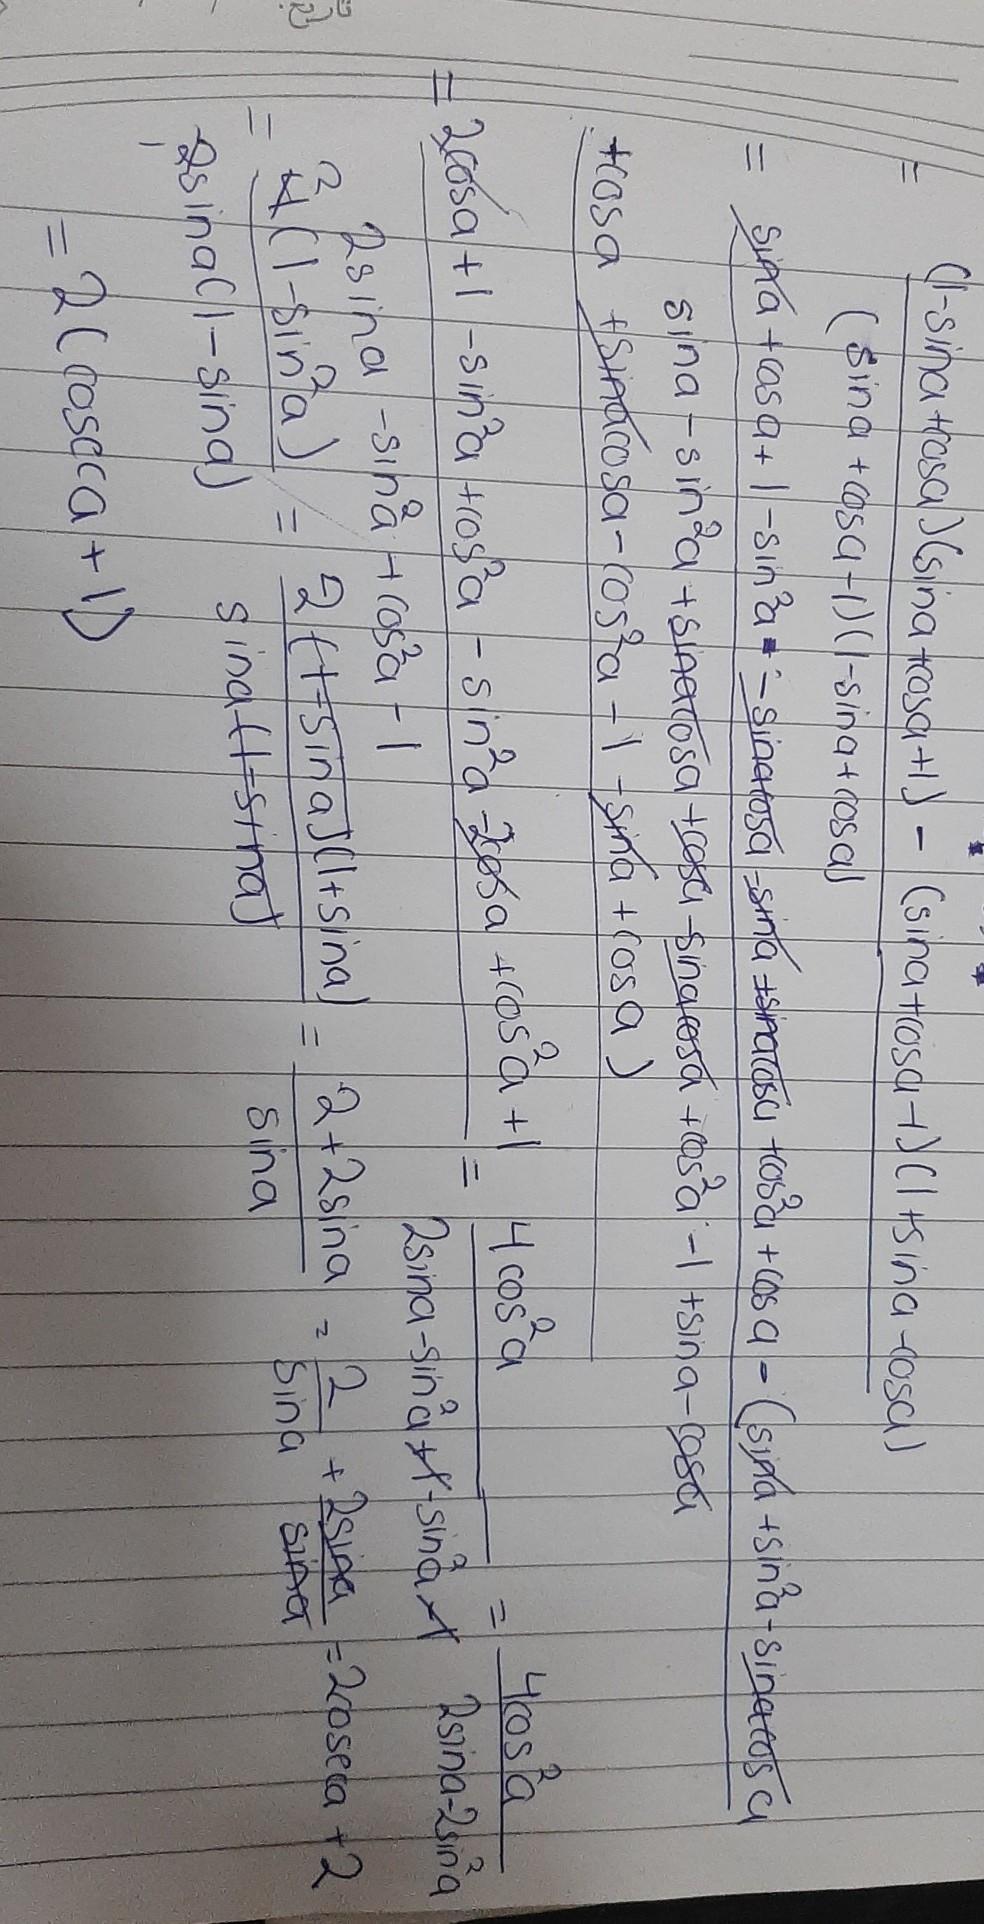 = (1-sina+cosa)(sina+cosa+1) - (sina+cosa-1)(1+sina-cosa)
(sina+cosa-1)(1-sina+cosa)
= sina+cosa+1-sin²a-sinacosa-sina+sinacosa+cos²a+cosa-(sina+sin²a-sinacosa
sina-sin²a+sinacosa+cosa-sinacosa+cos²a-1+sina-cosa
+cosa+sinacosa-cos²a-1-sina+cosa)
= 2cosa+1-sin²a+cos²a-sin²a-2cosa+cos²a+1 = 4cos²a = 4cos²a
2sina-sin²a+cos²a-1 2sina-sin²a+1-sin²a-1 2sina-2sin²a
= 4 2(1-sin²a) = 2(1-sina)(1+sina) = 2+2sina = 2 + 2sina = 2coseca+2
2sina(1-sina) sina(1-sina) sina sina sina
= 2(coseca+1)